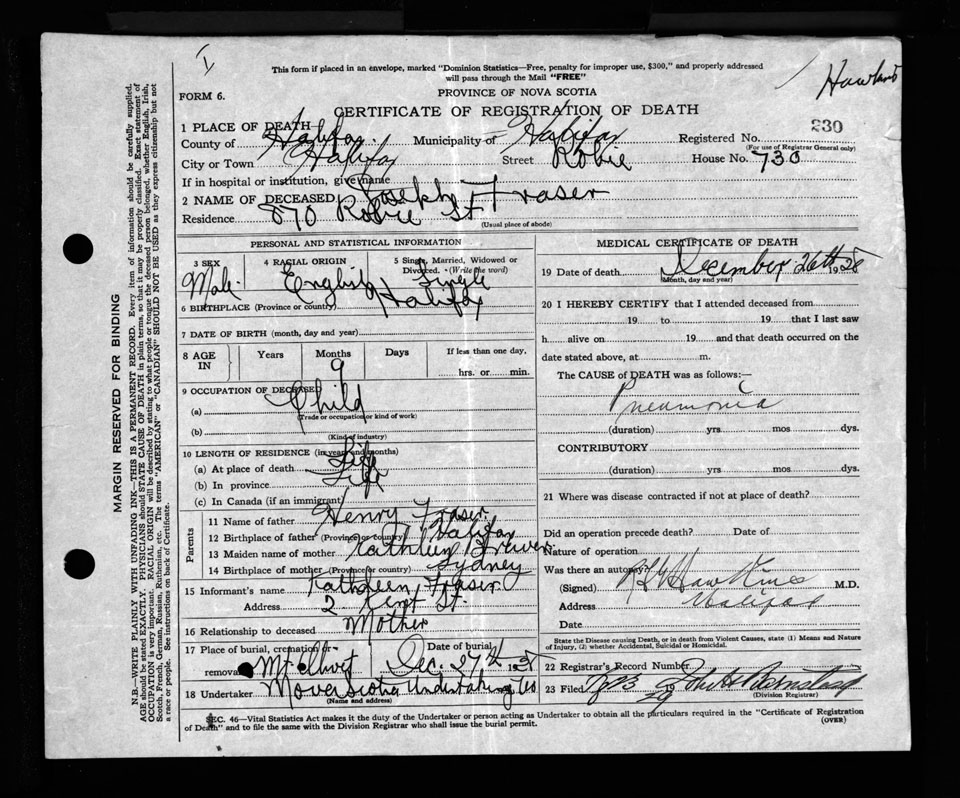 This form if placed in an envelope, marked "Dominion Statistics—Free, penalty for improper use, $300," and properly addressed
will pass through the Mail "FREE"
FORM 6.
PROVINCE OF NOVA SCOTIA
CERTIFICATE OF REGISTRATION OF DEATH
1 PLACE OF DEATH
County of Halifax Municipality of Halifax Registered No. 230
(For use of Registrar General only)
City or Town Halifax Street Robie House No. 730
If in hospital or institution, give name
2 NAME OF DECEASED Joseph Fraser
Residence 870 Robie St
(Usual place of abode)
PERSONAL AND STATISTICAL INFORMATION
3 SEX 4 RACIAL ORIGIN 5 Single, Married, Widowed or
Divorced. (Write the word)
Male English Single
6 BIRTHPLACE (Province or country) Halifax
7 DATE OF BIRTH (month, day and year)
8 AGE IN Years Months Days If less than one day,
9
hrs. or min.
9 OCCUPATION OF DECEASED
(a) Child
(Trade or occupation or kind of work)
(b)
(Kind of industry)
10 LENGTH OF RESIDENCE (in years and months)
(a) At place of death Life
(b) In province Life
(c) In Canada (if an immigrant)
Parents
11 Name of father Henry Fraser
12 Birthplace of father (Province or country) Halifax
13 Maiden name of mother Kathleen Brewer
14 Birthplace of mother (Province or country) Sydney
15 Informant's name Kathleen Fraser
Address 2 Kent St.
16 Relationship to deceased Mother
17 Place of burial, cremation or Date of burial
removal Mt. Olivet Dec. 27th 1928
18 Undertaker Nova Scotia Undertaking Co
(Name and address)
MEDICAL CERTIFICATE OF DEATH
19 Date of death December 26th 1928
(Month, day and year)
20 I HEREBY CERTIFY that I attended deceased from
19 to 19 that I last saw
h alive on 19 and that death occurred on the
date stated above, at m.
The CAUSE of DEATH was as follows:—
Pneumonia
(duration) yrs mos dys.
CONTRIBUTORY
(duration) yrs. mos dys.
21 Where was disease contracted if not at place of death?
Did an operation precede death? Date of
Nature of operation
Was there an autopsy?
(Signed) M.D.
Address Halifax
Date
State the Disease causing Death, or in death from Violent Causes, state (1) Means and Nature
of Injury, (2) whether Accidental, Suicidal or Homicidal.
22 Registrar's Record Number
23 Filed
(Division Registrar)
SEC. 46—Vital Statistics Act makes it the duty of the Undertaker or person acting as Undertaker to obtain all the particulars required in the "Certificate of Registration
of Death" and to file the same with the Division Registrar who shall issue the burial permit.
(OVER)
MARGIN RESERVED FOR BINDING
N.B.—WRITE PLAINLY WITH UNFADING INK—THIS IS A PERMANENT RECORD. Every item of information should be carefully supplied.
AGE should be stated EXACTLY. PHYSICIANS should STATE CAUSE OF DEATH in plain terms, so that it may be properly classified. Exact statement of
OCCUPATION is very important. RACIAL ORIGIN will be described by stating to what people or tongue the deceased person belonged, whether English, Irish,
Scotch, French, German, Russian, Ruthenian, etc. The terms "AMERICAN" or "CANADIAN" SHOULD NOT BE USED as they express citizenship but not
a race or people. See instructions on back of Certificate.